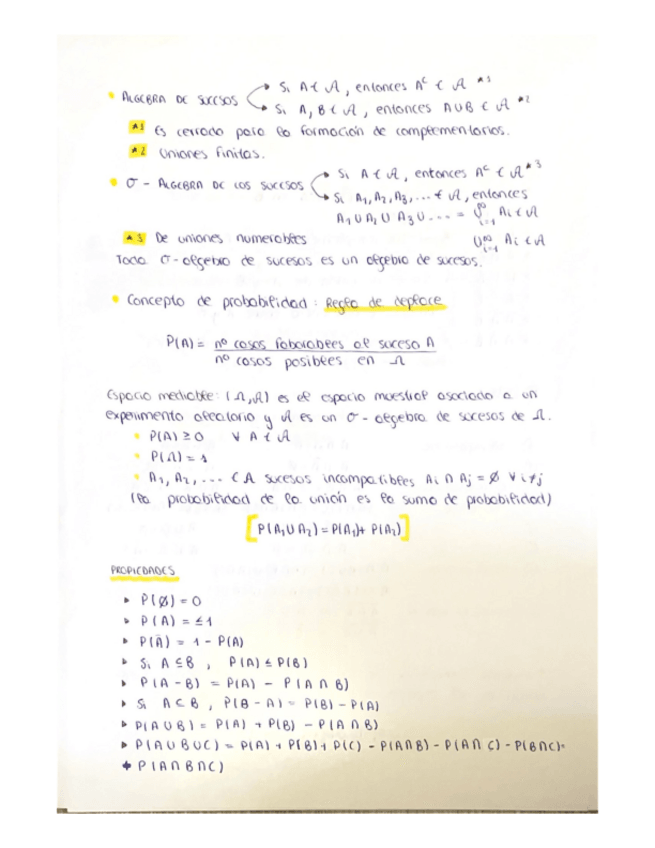 • ALGEBRA DE SUCESOS → Si A ∈ 𝒜, entonces Aᶜ ∈ 𝒜 *1
→ Si A, B ∈ 𝒜, entonces A∪B ∈ 𝒜 *2
*1 Es cerrado para la formación de complementarios.
*2 Uniones finitas.
• σ - ALGEBRA DE LOS SUCESOS → Si A ∈ 𝒜, entonces Aᶜ ∈ 𝒜 *3
→ Si A₁, A₂, A₃, ... ∈ 𝒜, entonces
A₁ ∪ A₂ ∪ A₃ ∪ ... = ⋃^∞_{i=1} Ai ∈ 𝒜
*3 De uniones numerables ⋃^∞_{i=1} Ai ∈ 𝒜
Toda σ-algebra de sucesos es un algebra de sucesos.
• Concepto de probabilidad: Regla de laplace
P(A) = nº casos faborables al suceso A
nº casos posibles en Ω
Espacio medible: (Ω, 𝒜) es el espacio muestral asociado a un
experimento aleatorio y 𝒜 es un σ - algebra de sucesos de Ω.
• P(A) ≥ 0 ∀ A ∈ 𝒜
• P(Ω) = 1
• A₁, A₂, ... ⊂ A sucesos incompatibles Ai ∩ Aj = ∅ ∀ i≠j
(la probabilidad de la unión es la suma de probabilidad)
[P(A₁∪A₂) = P(A₁)+ P(A₂)]
PROPIEDADES
▸ P(∅) = 0
▸ P(A) = ≤ 1
▸ P(Ā) = 1 - P(A)
▸ Si A ⊆ B, P(A) ≤ P(B)
▸ P(A - B) = P(A) - P(A ∩ B)
▸ Si A ⊂ B, P(B - A) = P(B) - P(A)
▸ P(A ∪ B) = P(A) + P(B) - P(A ∩ B)
▸ P(A ∪ B ∪ C) = P(A) + P(B) + P(C) - P(A∩B) - P(A ∩ C) - P(B∩C)=
+ P(A ∩ B ∩ C)